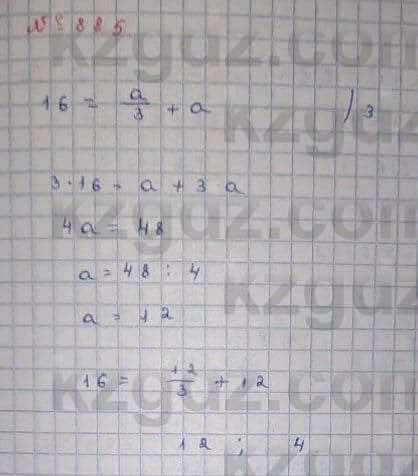 № 885
16 = a/3 + a | 3
3·16 = a + 3·a
4a = 48
a = 48 : 4
a = 12
16 = 12/3 + 12
12 ; 4
kzguz.com